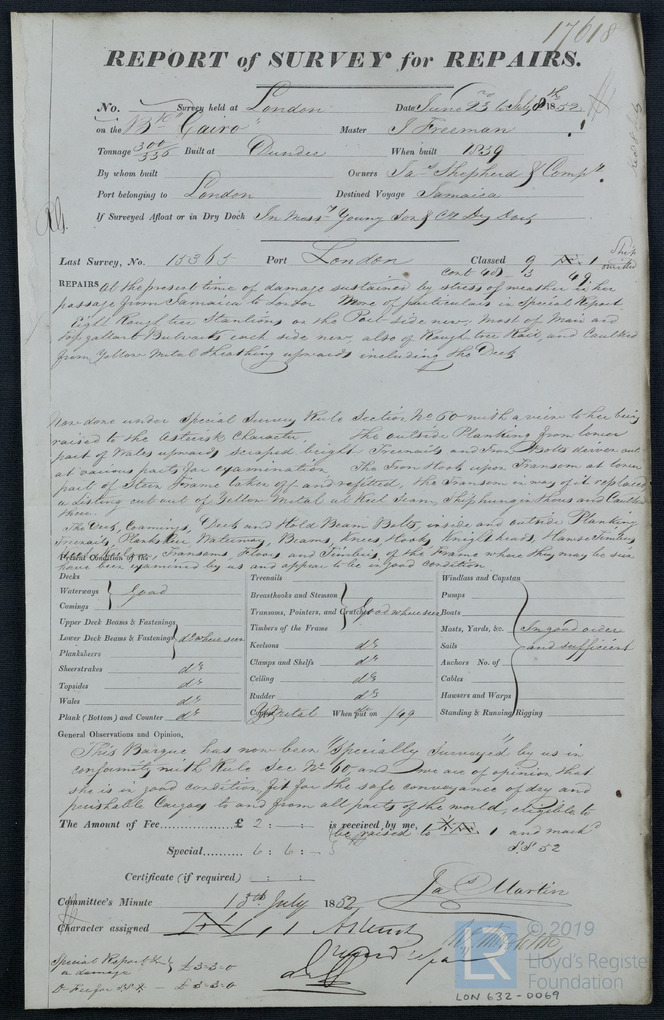 17618
REPORT of SURVEY for REPAIRS.
No. Survey held at London Date June 23rd to July 8th 1852
on the Bk "Cairo" Master J Freeman
Tonnage 300/336 Built at Dundee When built 1839
By whom built Owners Jas Shepherd & Compy.
Port belonging to London Destined Voyage Jamaica
If Surveyed Afloat or in Dry Dock In Messrs Young Son & Co Dry Dock
Last Survey, No. 15365 Port London Classed 9 1
49
REPAIRS at the present time of damage sustained by stress of weather in her
passage from Jamaica to London More of particulars in Special Report
Eight Rough tree Stantions on the Port side new, most of Main and
top gallant Bulwarks each side new, also of Rough tree Rail, and Caulked
from Yellow Metal Sheathing upwards including the Deck
Now done under Special Survey Rule Section No 60 with a view to her being
raised to the Asterisk Character. The outside Planking from lower
part of Wales upwards scraped bright Treenails and Iron Bolts driven out
at various parts for examination The Iron Hook upon Transom at lower
part of Stern Frame taken off and refitted, the Transom in way of it replaced
a listing cut out of Yellow Metal at Keel Seam, Ship hung in Shores and Caulked
there.
The Deck, Coamings, Deck and Hold Beam Bolts, inside and outside Planking
Treenails, Planksheer Waterway, Beams, Knees, Hooks, Knightheads, Hawse Timbers
Transoms, Floors and Timbers, of the Frame where they may be seen
have been examined by us and appear to be in good condition
Present Condition of the
Decks
Waterways
Comings
Good
Upper Deck Beams & Fastenings
Lower Deck Beams & Fastenings
Planksheers
do where seen
Sheerstrakes do
Topsides do
Wales do
Plank (Bottom) and Counter do
Treenails
Breasthooks and Stemson
Transoms, Pointers, and Crutches
Timbers of the Frame
Good where seen
Keelsons do
Clamps and Shelfs do
Ceiling do
Rudder do
Y Metal When put on /49
Windlass and Capstan
Pumps
Boats
Masts, Yards, &c.
Sails
Anchors No. of
Cables
Hawsers and Warps
Standing & Running Rigging
In good order
and sufficient
General Observations and Opinion,
This Barque has now been "Specially Surveyed" by us in
conformity with Rule Sec No 60, and we are of opinion that
she is in good condition, fit for the safe conveyance of dry and
perishable Cargoes to and from all parts of the world, eligible to
be raised to 1 and markd
SS 52
The Amount of Fee............... £ 2 : - : - is received by me,
Special.......... 6 : 6 : -
Certificate (if required) : :
Jas Martin
Committee's Minute 13th July 1852
Character assigned 1
Special Report
on damage £3-3-0
Do Fee for SS £3-3-0
LR
© 2019
Lloyd's Register
Foundation
LON 632-0069